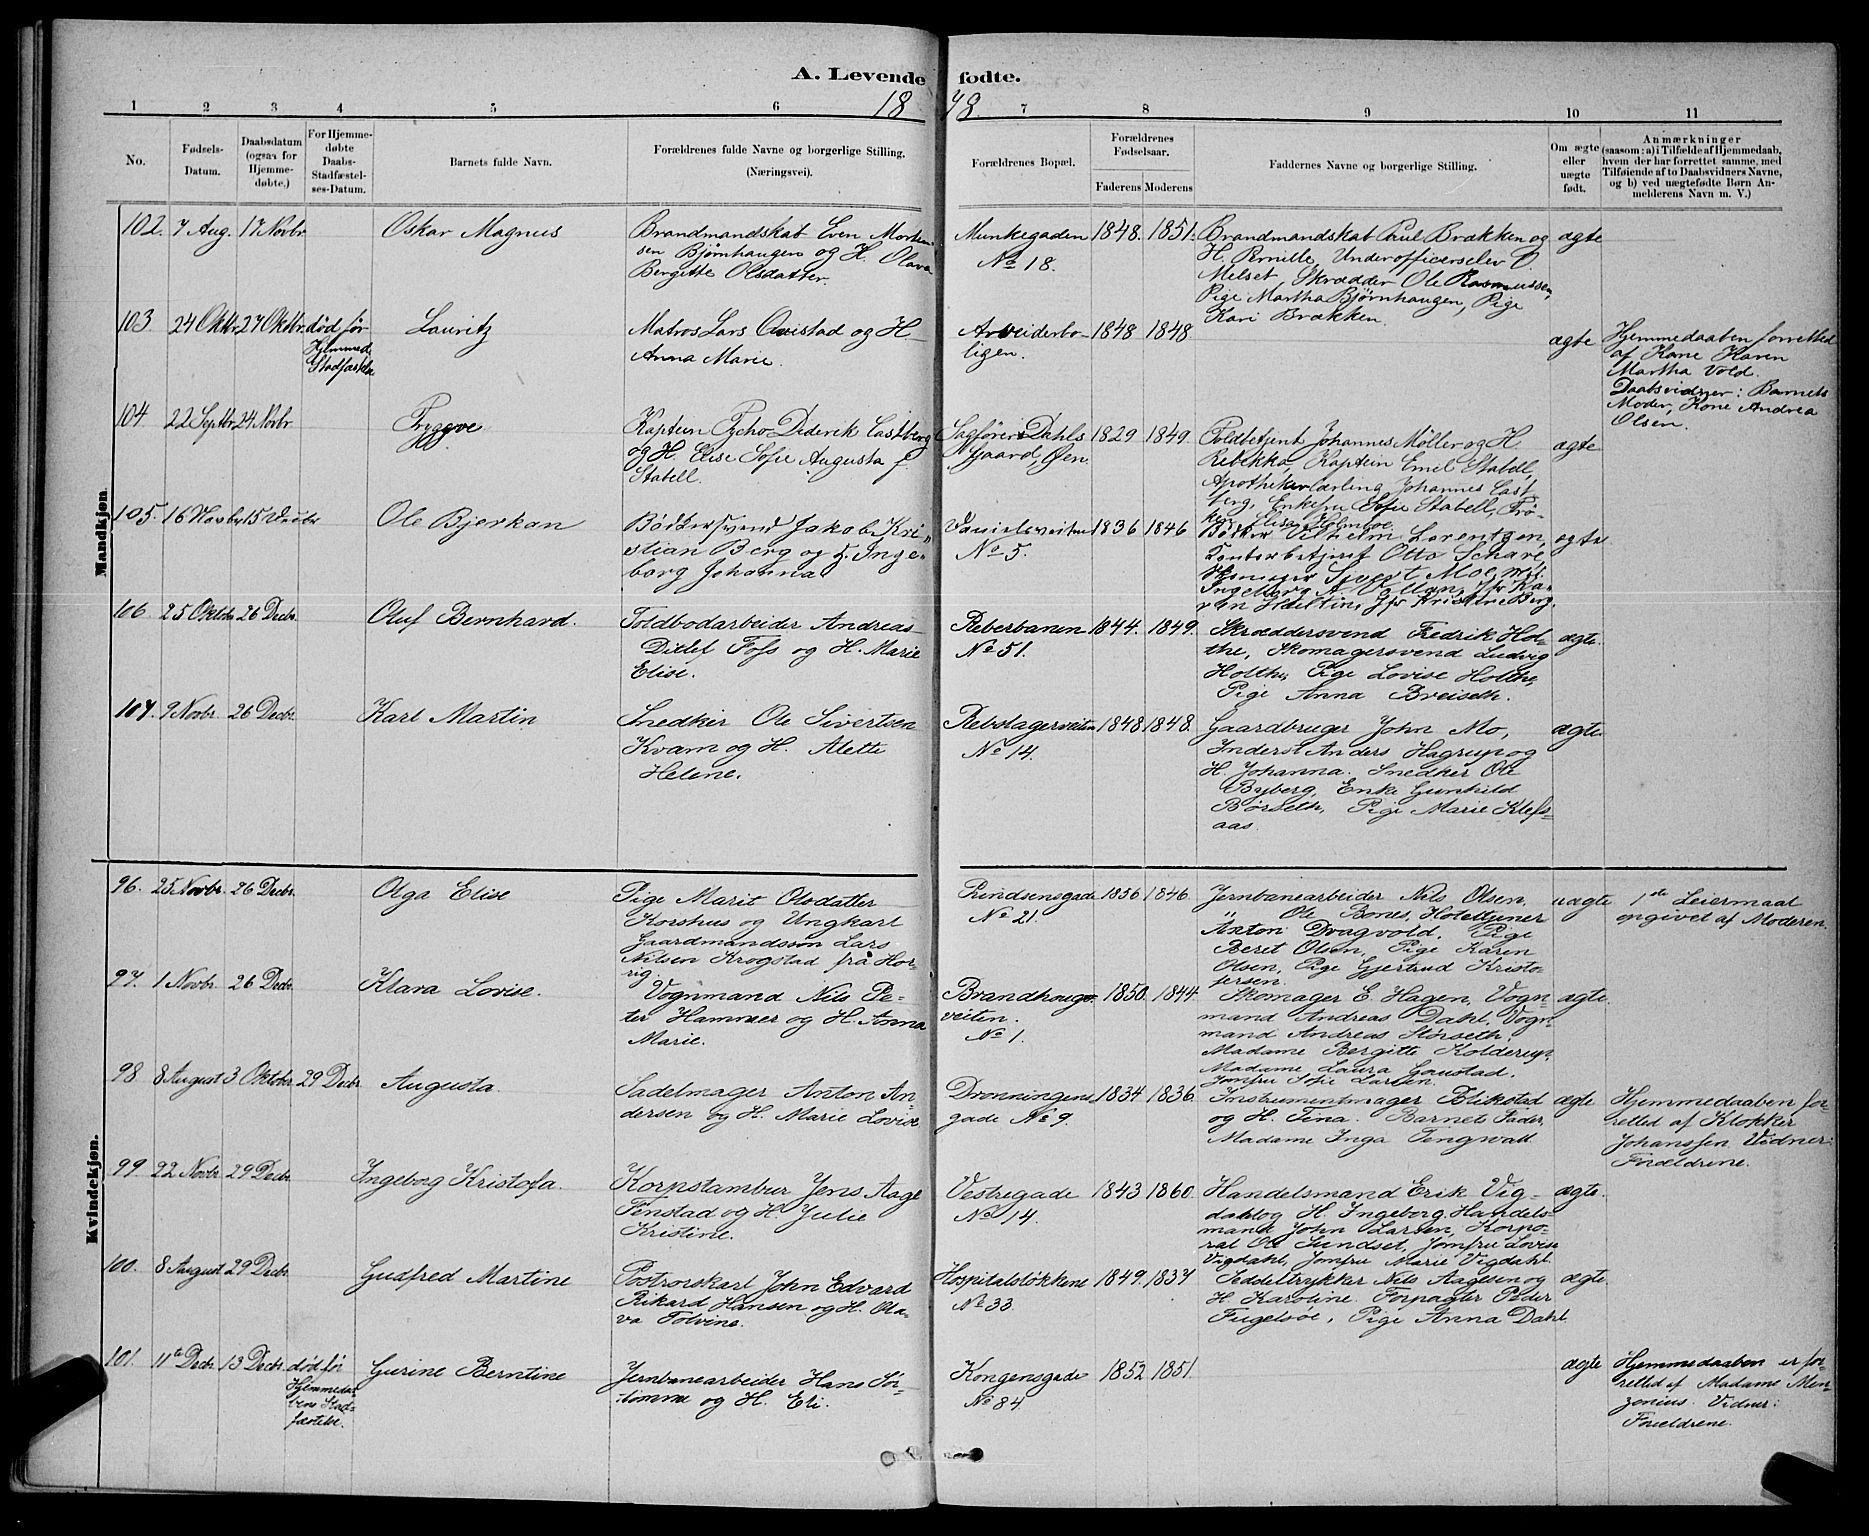 A. Levende fødte.
1878.
1 2 3 4 5 6 7 8 9 10 11
No.
Fødsels-
Datum.
Daabsdatum
(ogsaa for
Hjemme-
døbte.)
For Hjemme-
døbte
Daabs-
Stadfæstel-
ses-Datum.
Barnets fulde Navn.
Forældrenes fulde Navne og borgerlige Stilling.
(Næringsvei).
Forældrenes Bopæl.
Forældrenes
Fødselsaar.
Faderens Moderens
Faddernes Navne og borgerlige Stilling.
Om ægte
eller
uægte
født.
Anmærkninger
(saasom: a) i Tilfælde af Hjemmedaab,
hvem der har forrettet samme, med
Tilføiende af to Daabsvidners Navne,
og b) ved uægtefødte Børn An-
melderens Navn m. V.)
Mandkjøn.
102. 7 Aug. 17 Novbr
Oskar Magnus
Brandmandskab Even Morten-
sen Bjørnhaugen og H. Olava
Bergitte Olsdatter.
Munkegaden
No 18.
1848. 1851.
Brandmandskab Paul Brækken og
H. Pernille, Underofficerselev O.
Melset, Skrædder Ole Rasmussen,
Pige Martha Bjørnhaugen, Pige
Kari Brækken.
ægte
103 24 Oktbr. 27 Oktbr. død før
Hjemmed.
Stadfæstelse
Lauritz
Matros Lars Qvistad og H
Anna Marie.
Arbeiderbo-
ligen.
1848 1848.
ægte
Hjemmedaaben forrettet
af Kone Karen
Martha Vold.
Daabsvidner: Barnets
Moder, Kone Andrea
Olsen.
104 22 Septbr. 24 Novbr
Tryggve
Kaptein Tycho Diderik Castberg
og H. Elise Sofie Augusta f.
Stabell.
Sagfører Dahls
Gaard, Øen
1829 1849.
Toldbetjent Johannes Møller og H
Rebekka, Kaptein Emil Stabell,
Apothekerlærling Johannes Cast
berg, Enkefru Sofie Stabell, Frø-
ken Elisa Holmboe.
ægte
105. 16 Novbr 15 Decbr
Ole Bjerkan
Bødkersvend Jakob Kri-
stian Berg og H. Inge-
borg Johanna
Danielsveiten
No 5.
1836 1846
Bødker Vilhelm Lorentzen,
Kontorbetjent Otto Schare,
Sivert Moe,
Ingeborg A.
Jfr Kristine Berg.
ægte
106. 25 Oktobr 26 Decbr.
Oluf Bernhard.
Toldbodarbeider Andreas
Ditlef Foss og H. Marie
Elise.
Reberbanen
No 51.
1844. 1849.
Skræddersvend Fredrik Hol-
the, Skomagersvend Ludvig
Holthe, Pige Lovise Holthe,
Pige Anna Breiseth.
ægte.
107. 9 Novbr. 26 Decbr.
Karl Martin
Snedker Ole Sivertsen
Kvam og H. Alette
Helene.
Rebslagerveiten
No 14.
1848 1848.
Gaardbruger John Mo,
Inderst Anders Hagrup og
H. Johanna. Snedker Ole
Byberg, Enke Gunhild
Børseth, Pige Marie Klefs-
aas.
ægte.
Kvindekjøn.
96. 25 Novbr. 26 Decbr.
Olga Elise
Pige Marit Olsdatter
Korshus og Ungkarl
Gaardmandssøn Lars
Nilsen Krogstad fra Hor-
rig.
Prindsensgade
No 21.
1856 1846.
Jernbanearbeider Nils Olsen,
" Ole Bones, Hoteltjener
Anton Dragvold, Pige
Beret Olsen, Pige Karen
Olsen, Pige Gjertrud Kristo-
fersen.
uægte
1ste Leiermaal
opgivet af Moderen.
97. 1 Novbr. 26 Decbr.
Klara Lovise.
Vognmand Nils Pe-
ter Hammer og H. Anna
Marie.
Brandhougs-
veiten.
No 1.
1850. 1844.
Skomager E. Hagen, Vogn-
mand Andreas Dahl, Vogn-
mand Andreas Størseth,
Madame Bergitte Kolderup,
Madame Laura Gaustad,
Jomfru Sofie Larsen.
ægte.
98 8 August 3 Oktobr. 29 Decbr.
Augusta.
Sadelmager Anton An-
dersen og H. Marie Lovise
Dronningens
gade No 9.
1834 1836.
Instrumentmager Blikstad
og H. Tina. Barnets Fader,
Madame Inga Tengwall
ægte
Hjemmedaaben for-
rettet af Klokker
Johanssen Vidner:
Forældrene.
99. 22 Novbr. 29 Decbr.
Ingeborg Kristofa.
Korpstambur Jens Aage
Fenstad og H. Julie
Kristine.
Vestregade
No 14.
1843 1860.
Handelsmand Erik Vig-
dahl og H. Ingeborg. Handels-
mand John Larsen, Korpo-
ral Ole Sundset, Jomfru Lovise
Vigdahl, Jomfru Marie Vigdahl.
ægte.
100. 8 August 29 Decbr.
Gudfred Martine
Postrorskarl John Edvard
Rikard Hansen og H. Ola-
va Tolvine.
Hospitalsløkkene
No 33.
1849. 1837
Seddeltrykker Nils Aagesen og
H. Karoline. Forpagter Peder
Fugelsøe, Pige Anna Dahl
ægte.
101. 11te Decbr. 13 Decbr. død før
Hjemmedaa-
bens Stad-
fæstelse.
Gurine Berntine
Jernbanearbeider Hans Sør-
tømme og H. Eli.
Kongensgade
No 84
1852 1851.
ægte
Hjemmedaaben er for-
rettet af Madame Men-
zonius. Vidner:
Forældrene.